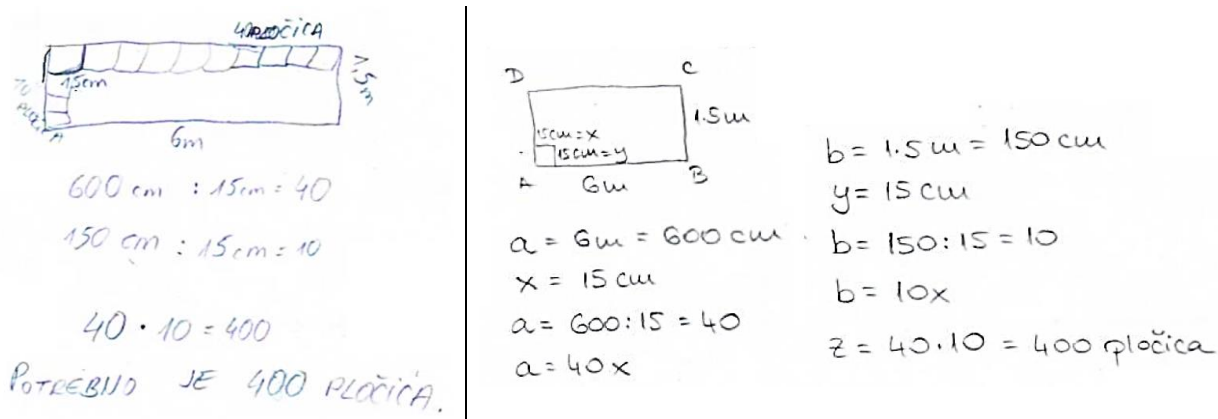 40 PLOČICA
15cm
10 PLOČICA
1,5m
6m
600 cm : 15cm = 40
150 cm : 15cm = 10
40 · 10 = 400
POTREBNO JE 400 PLOČICA.
D C
15cm = x
15cm = y
1.5m
A 6m B
a = 6m = 600 cm
x = 15 cm
a = 600:15 = 40
a = 40x
b = 1.5 m = 150 cm
y = 15 cm
b = 150:15 = 10
b = 10x
z = 40·10 = 400 pločica